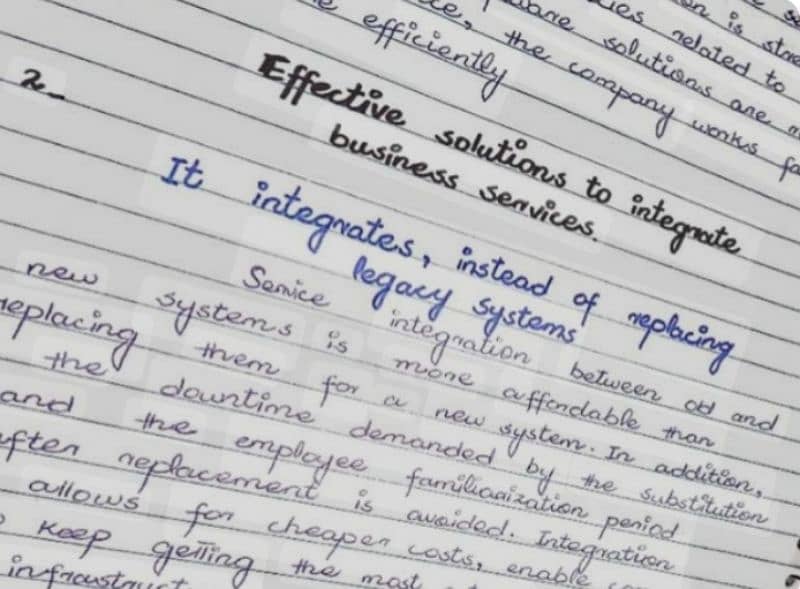 is
related to
ware solutions are
efficiently
the company works
2-
Effective solutions to integrate
business services.
It integrates, instead of replacing
legacy systems
Service integration between old and
new systems is more affordable than
replacing them for a new system. In addition,
the downtime demanded by the substitution
and the employee familiarization period
after replacement is avoided. Integration
allows for cheaper costs, enable
keep getting the most